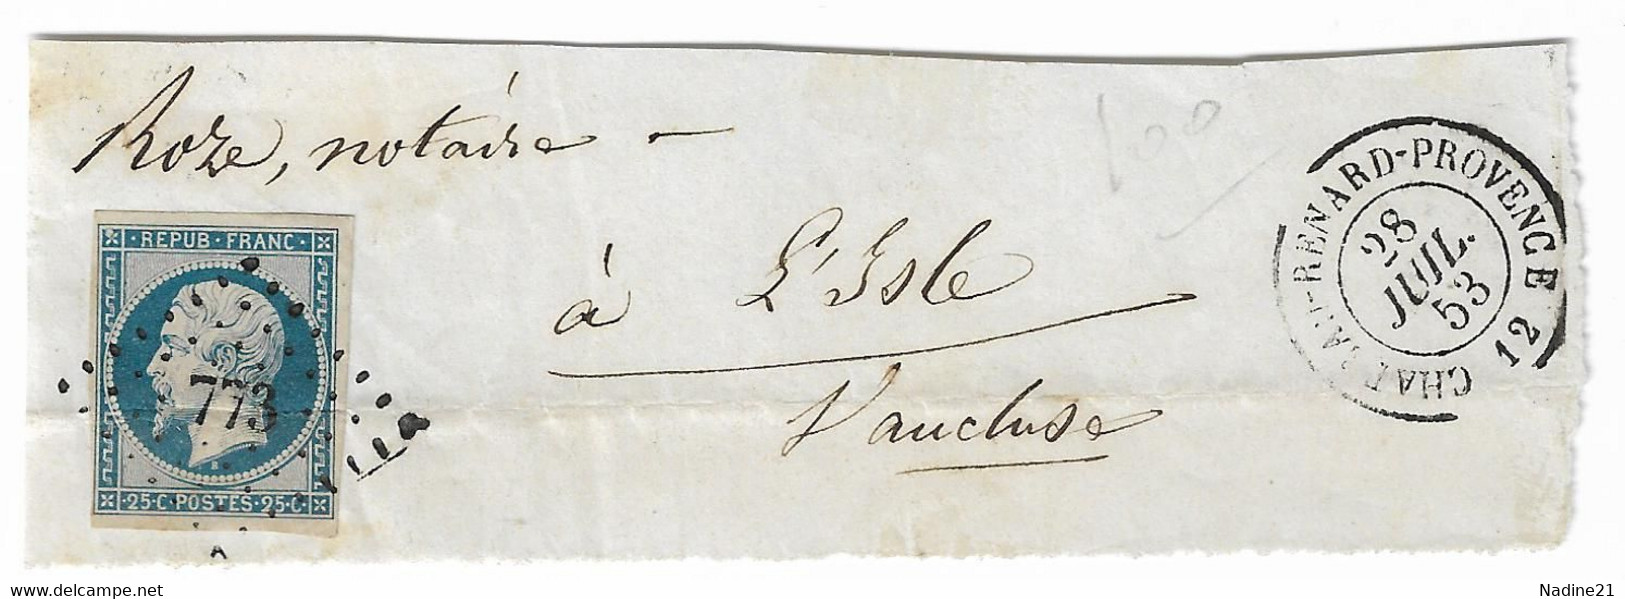 Roze, notaire —
100
REPUB · FRANC ·
à L'Isle
773
B
· 25 · C · POSTES · 25 · C ·
Vaucluse
CHATEAU-RENARD-PROVENCE
28
JUIL.
53
12
delcampe.net
Nadine21